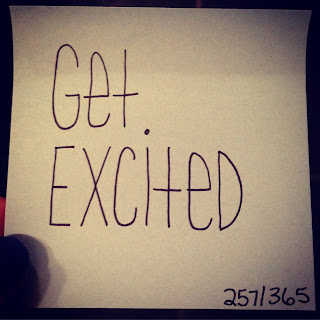 Get
EXCitED
257/365